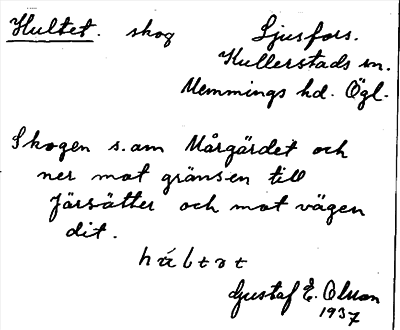 Hultet. skog
Ljusfors.
Kullerstads sn.
Memmings hd. Ögl.
Skogen s. om Mårgärdet och
ner mot gränsen till
Järsätter och mot vägen
dit.
Gustaf E. Olson
1937